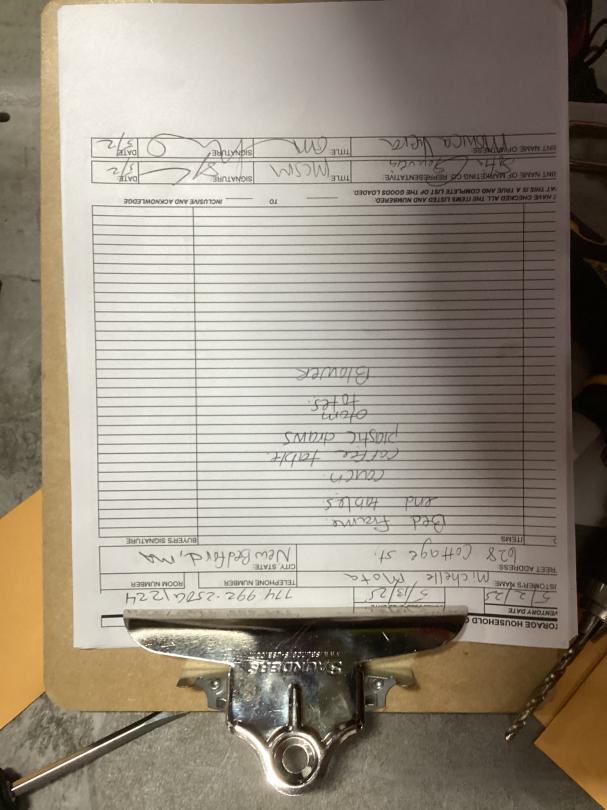 TORAGE HOUSEHOLD
VENTORY DATE
5/2/25 5/13/25
STOMER'S NAME: TELEPHONE NUMBER ROOM NUMBER
Michelle Mota 774 992-2506 1224
REET ADDRESS: CITY/STATE:
628 Cottage St. New Bedford, MA
ITEMS BUYER'S SIGNATURE
Bed Frame.
end tables
couch.
coffee table.
plastic draws
otom
totes.
Blower
I HAVE CHECKED ALL THE ITEMS LISTED AND NUMBERED. TO INCLUSIVE AND ACKNOWLEDGE
AT THIS IS A TRUE AND COMPLETE LIST OF THE GOODS LOADED.
INT NAME OF MARKETING CO REPRESENTATIVE: TITLE MCSM SIGNATURE DATE 5/2
INT NAME OF WITNESS: Monica Viera TITLE SIGNATURE DATE 5/2
SAUNDERS